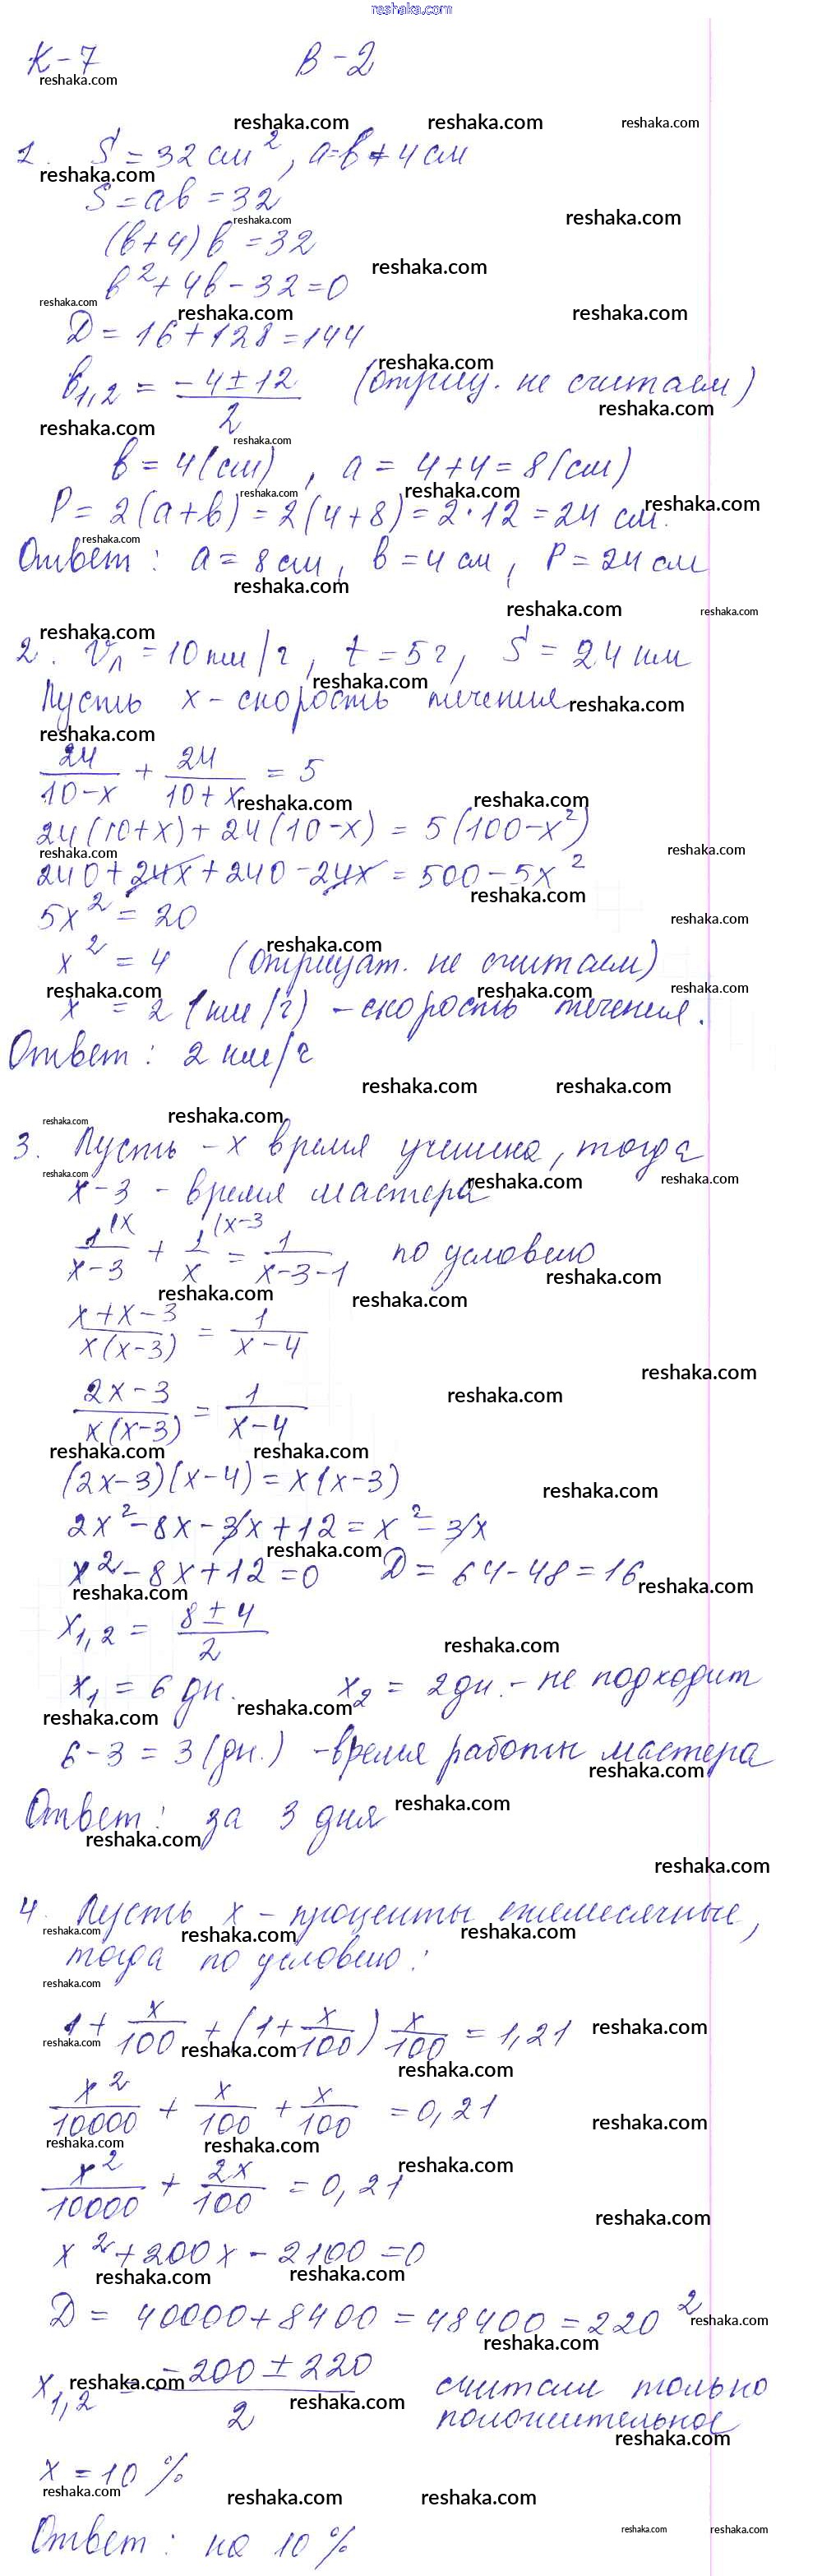 reshaka.com
К-7 В-2
1. S = 32 см², a=b+4 см
S = ab = 32
(b+4) b = 32
b² + 4b - 32 = 0
D = 16 + 128 = 144
b₁,₂ = (-4 ± 12)/2 (отриц. не считаем)
b = 4 (см), a = 4+4 = 8 (см)
P = 2(a+b) = 2(4+8) = 2·12 = 24 см.
Ответ: a = 8 см, b = 4 см, P = 24 см
2. Vл = 10 км/ч, t = 5 ч, S = 24 км
Пусть x - скорость течения
24/(10-x) + 24/(10+x) = 5
24(10+x) + 24(10-x) = 5(100-x²)
240 + 24x + 240 - 24x = 500 - 5x²
5x² = 20
x² = 4 (отрицат. не считаем)
x = 2 (км/ч) - скорость течения.
Ответ: 2 км/ч
3. Пусть - x время ученика, тогда
x-3 - время мастера
1/(x-3) (x + 1/x (x-3 = 1/(x-3-1) по условию
(x+x-3)/(x(x-3)) = 1/(x-4)
(2x-3)/(x(x-3)) = 1/(x-4)
(2x-3)(x-4) = x(x-3)
2x² - 8x - 3x + 12 = x² - 3x
x² - 8x + 12 = 0 D = 64-48 = 16
x₁,₂ = (8 ± 4)/2
x₁ = 6 дн. x₂ = 2 дн. - не подходит
6-3 = 3 (дн.) - время работы мастера
Ответ: за 3 дня
4. Пусть x - проценты ежемесячные,
тогда по условию:
1 + x/100 + (1 + x/100) x/100 = 1,21
x²/10000 + x/100 + x/100 = 0,21
x²/10000 + 2x/100 = 0,21
x² + 200x - 2100 = 0
D = 40000 + 8400 = 48400 = 220²
x₁,₂ = (-200 ± 220)/2 считаем только
положительное
x = 10 %
Ответ: на 10 %